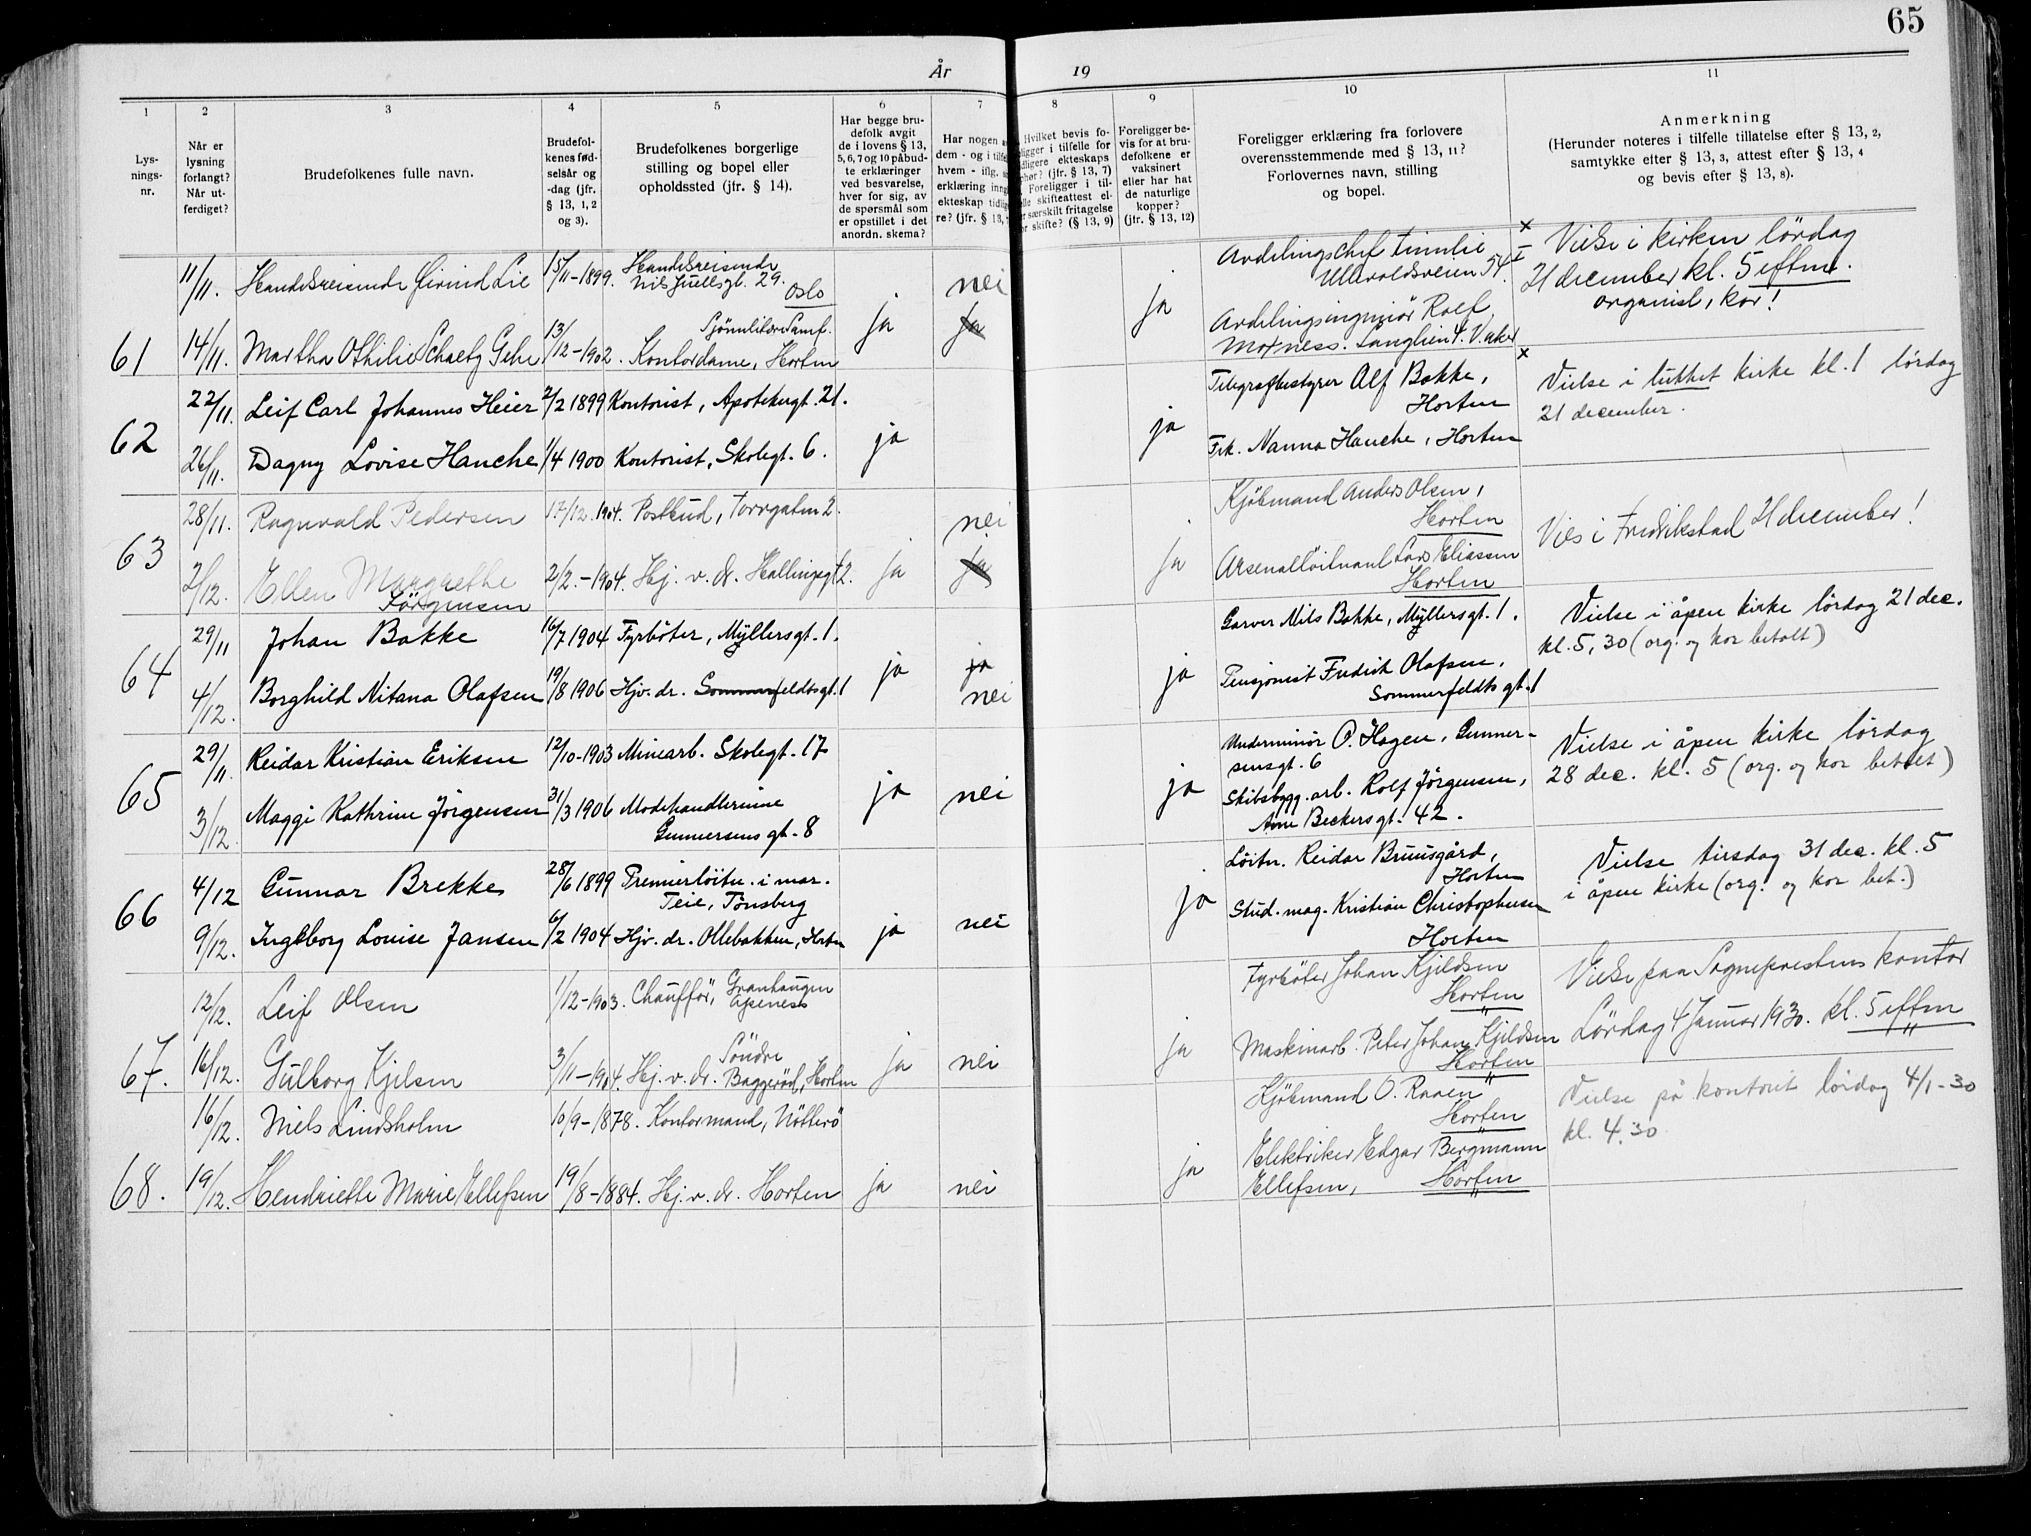 65
År 19
1 2 3 4 5 6 7 8 9 10 11
Lys-
nings-
nr.
Når er
lysning
forlangt?
Når ut-
ferdiget?
Brudefolkenes fulle navn.
Brudefol-
kenes fød-
selsår og
-dag (jfr.
§ 13, 1, 2
og 3).
Brudefolkenes borgerlige
stilling og bopel eller
opholdssted (jfr. § 14).
Har begge bru-
defolk avgit
de i lovens § 13,
5, 6, 7 og 10 påbud-
te erklæringer
ved besvarelse,
hver for sig, av
de spørsmål som
er opstillet i det
anordn. skema?
Har nogen a
dem - og i tilfe
hvem - iflg. 
erklæring inng
ekteskap tidlig
re? (jfr. § 13,
Hvilket bevis fo-
ligger i tilfelle for
dligere ekteskaps
hør? (jfr. § 13, 7)
Foreligger i til-
lle skifteattest el-
r særskilt fritagelse
or skifte? (§ 13, 9)
Foreligger be-
vis for at bru-
defolkene er
vaksinert
eller har hat
de naturlige
kopper?
(jfr. § 13, 12)
Foreligger erklæring fra forlovere
overensstemmende med § 13, 11?
Forlovernes navn, stilling
og bopel.
Anmerkning
(Herunder noteres i tilfelle tillatelse efter § 13, 2,
samtykke etter § 13, 3, attest efter § 13, 4
og bevis efter § 13, 8).
61
11/11. Handelsreisende Eivind Lie 15/11-1899. Handelsreisende
Nils Juelsgt. 29.
Oslo
nei
14/11. Martha Othilie Schaety Gehe 13/12-1902.
Kontordame, Horten
ja ja
ja
Avdelingschef
Ullevoldsveien 54 I
Avdelingsingeniør Rolf
Morness. Langlien 4. V. aker
x Vielse i kirken lördag
21 december kl. 5 eftm.
organist, kor!
62
22/11. Leif Carl Johannes Heier 2/2 1899 Kontorist, Apotekergt. 21.
26/11. Dagny Lovise Hanche 1/4 1900 Kontorist, Skolegt. 6.
ja
ja
Telegrafbestyrer Alf Bakke,
Horten
Frk. Nanna Hanche, Horten
x Vielse i lukket kirke kl. 1 lördag
21 december.
63
28/11. Ragnvald Pedersen 17/12.1904. Postbud, Torvgaten 2.
nei
2/12. Ellen Margrethe
Jörgensen
2/2.-1904. Hj. v. dr. Hallingsgt 2.
ja ja
ja
Kjöbmand Anders Olsen,
Horten
Arsenallöitnant Lars Eliassen
Horten
Vies i Fredrikstad 21 december!
64
29/11 Johan Bakke 16/7 1904 Fyrböter, Myllersgt. 1.
4/12. Borghild Nitana Olafsen 19/8 1906 Hjv. dr. Sommerfeldtsgt. 1
ja ja
nei
ja
Garver Nils Bakke, Myllersgt. 1.
Pensjonist Fredrik Olafsen,
Sommerfeldts gt. 1
Vielse i åpen kirke lördag 21 dec.
kl. 5,30 (org. og kor betalt)
65
29/11. Reidar Kristian Eriksen 12/10-1903 Minearb. Skolegt. 17
3/12. Maggi Kathrine Jörgensen 31/3 1906 Modehandlerinne
Gunnersens gt. 8
ja nei
ja
Underminör O. Hagen, Gunner-
sensgt. 6
Skibsbygg. arb. Rolf Jörgensen,
Arne Beckersgt. 42.
Vielse i åpen kirke lördag
28 dec. kl. 5 (org. og kor betalt)
66
4/12 Gunnar Brekke 28/6 1899 Premierlöitn. i mar.
Teie, Tönsberg
9/12. Ingeborg Louise Jansen 6/2 1904 Hjv. dr. Ollebakken, Horten
ja nei
ja
Löitn. Reidar Bruusgård,
Horten
Stud. mag. Kristian Christophersen
Horten
Vielse tirsdag 31 dec. kl. 5
i åpen kirke (org. og kor bet.)
67.
12/12. Leif Olsen 1/12-1903. Chaufför, Granhaugen
Apenes
16/12. Gulborg Kjelsen 3/11-1904. Hj. v. dr. Söndre
Baggeröd, Horten
ja nei
ja
Fyrböter Johan Kjeldsen
Horten
Maskinarb. Peter Johan Kjeldsen
Horten
Vielse paa Sogneprestens kontor
Lördag 4 Januar 1930. kl. 5 eftm
68.
16/12. Niels Lindsholm 10/9-1878. Kontormand, Nötterö
19/12. Hendriette Marie Ellefsen 19/8-1884. Hj. v. dr. Horten
ja nei
ja
Kjöbmand O. Raaen
Horten
Elektriker Edgar Bergmann
Ellefsen, Horten
Vielse på kontoret lördag 4/1-30
kl. 4.30